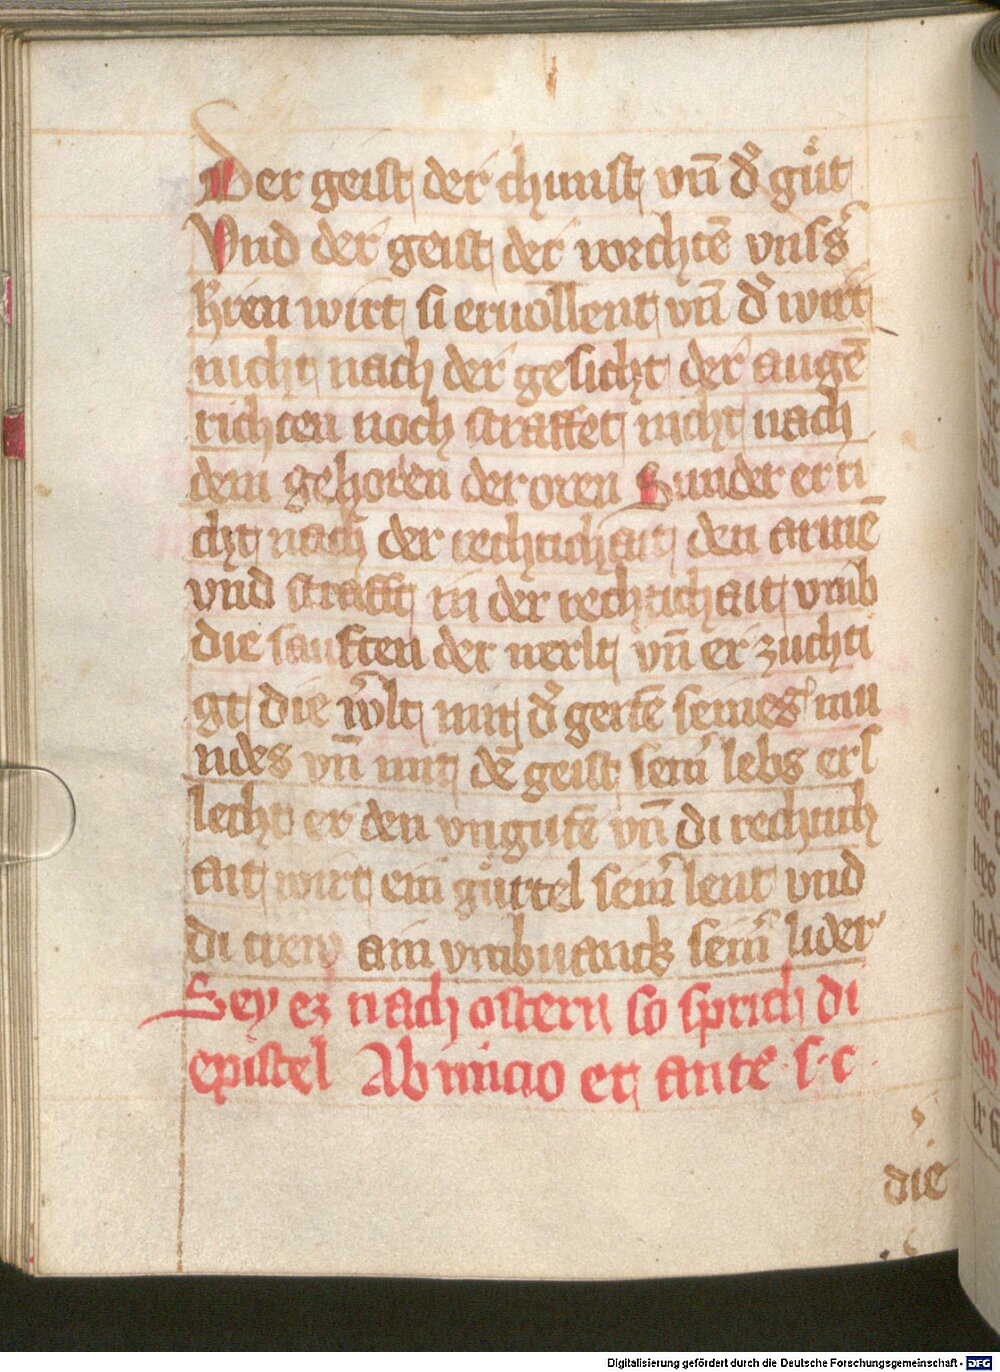 Der geist der chunst vn̄ d᷒ gůt
Vnd der geist der vorchtē vnss᷒
h᷒ren wirt si eruollent vn̄ d᷒ wirt
nicht nach der gesicht der augē
richten noch straffet nicht nach
dem gehoren der oren Sunder er ri
cht nach der rechtichait den armē
vnd strafft in der rechtichait vmb
die sanften der werlt vn̄ er zuchti
gt die w᷒lt mit d᷒ gertē seines mu
ndes vn̄ mit dē geist sein᷒ lebs ers
lecht er den vngutē vn̄ di rechtich
ait wirt ein gu᷒rtel sein᷒ lent vnd
di trew ain vmbuanck sein᷒ lider
Sey ez nach ostern so sprich di
epistel Ab inicio et ante · s · c ·
die
Digitalisierung gefördert durch die Deutsche Forschungsgemeinschaft - DFG